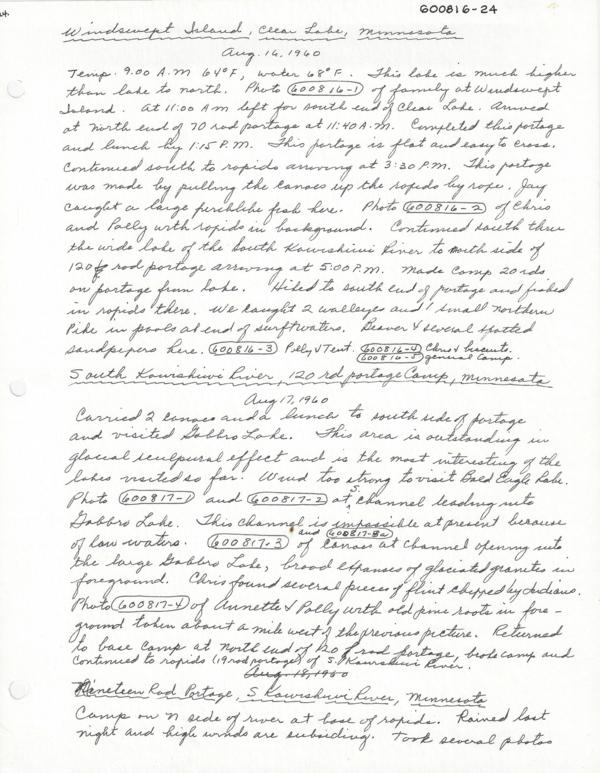 24.
600816-24
Windswept Island, Clear Lake, Minnesota
Aug. 16, 1960
Temp. 9.00 A.M 64°F, water 68°F. This lake is much higher
than lake to north. Photo 600816-1 of family at Windswept
Island. At 11:00 AM left for south end of Clear Lake. Arrived
at North end of 70 rod portage at 11:40 A.M. Completed this portage
and lunch by 1:15 P.M. This portage is flat and easy to cross.
Continued south to rapids arriving at 3:30 P.M. This portage
was made by pulling the canoes up the rapids by rope. Jay
caught a large perchlike fish here. Photo 600816-2 of Chris
and Polly with rapids in background. Continued south thru
the wide lake of the South Kawishiwi River to north side of
120 rod portage arriving at 5:00 P.M. Made Camp 20 rds
on portage from lake. Hiked to south end of portage and fished
in rapids there. We caught 2 walleyes and 1 small northern
Pike in pools at end of swiftwaters. Beaver & several spotted
sandpipers here. 600816-3 Polly & Tent. 600816-4 Chris & biscuits.
600816-5 general Camp.
South Kawishiwi River, 120 rd portage Camp, Minnesota
Aug 17, 1960
Carried 2 canoes and a lunch to south side of portage
and visited Gabbro Lake. This area is outstanding in
glacial sculptural effect and is the most interesting of the
lakes visited so far. Wind too strong to visit Bald Eagle Lake.
Photo 600817-1 and 600817-2 at S. channel leading into
Gabbro Lake. This channel is impassible at present because
of low waters. 600817-3 and 600817-3a of Canoes at Channel opening into
the large Gabbro Lake, broad expanses of glaciated granites in
foreground. Chris found several pieces of flint chipped by Indians.
Photo 600817-4 of Annette & Polly with old pine roots in fore-
ground taken about a mile west of the previous picture. Returned
to base Camp at North end of 120 rod portage, broke camp and
Continued to rapids (19 rod portage) of S. Kawishiwi River.
Aug. 18, 1960
Nineteen Rod Portage, S Kawishiwi River, Minnesota
Camp on N side of river at base of rapids. Rained last
night and high winds are subsiding. Took several photos